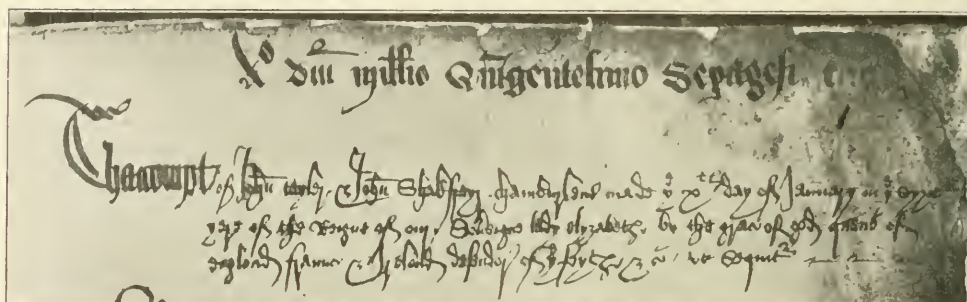 Ao dm̅ millio Qn̅gentesimo Sexagesi
Thaccompt of John tayler & John Shakspeyr chamburlens made ye xth day of January in ye
yere of the Reigne of our Soveigne lady elyzabeth by the grace of god quene of
englond fraunce & Ireland defendor of ye feythe &c ut sequitr